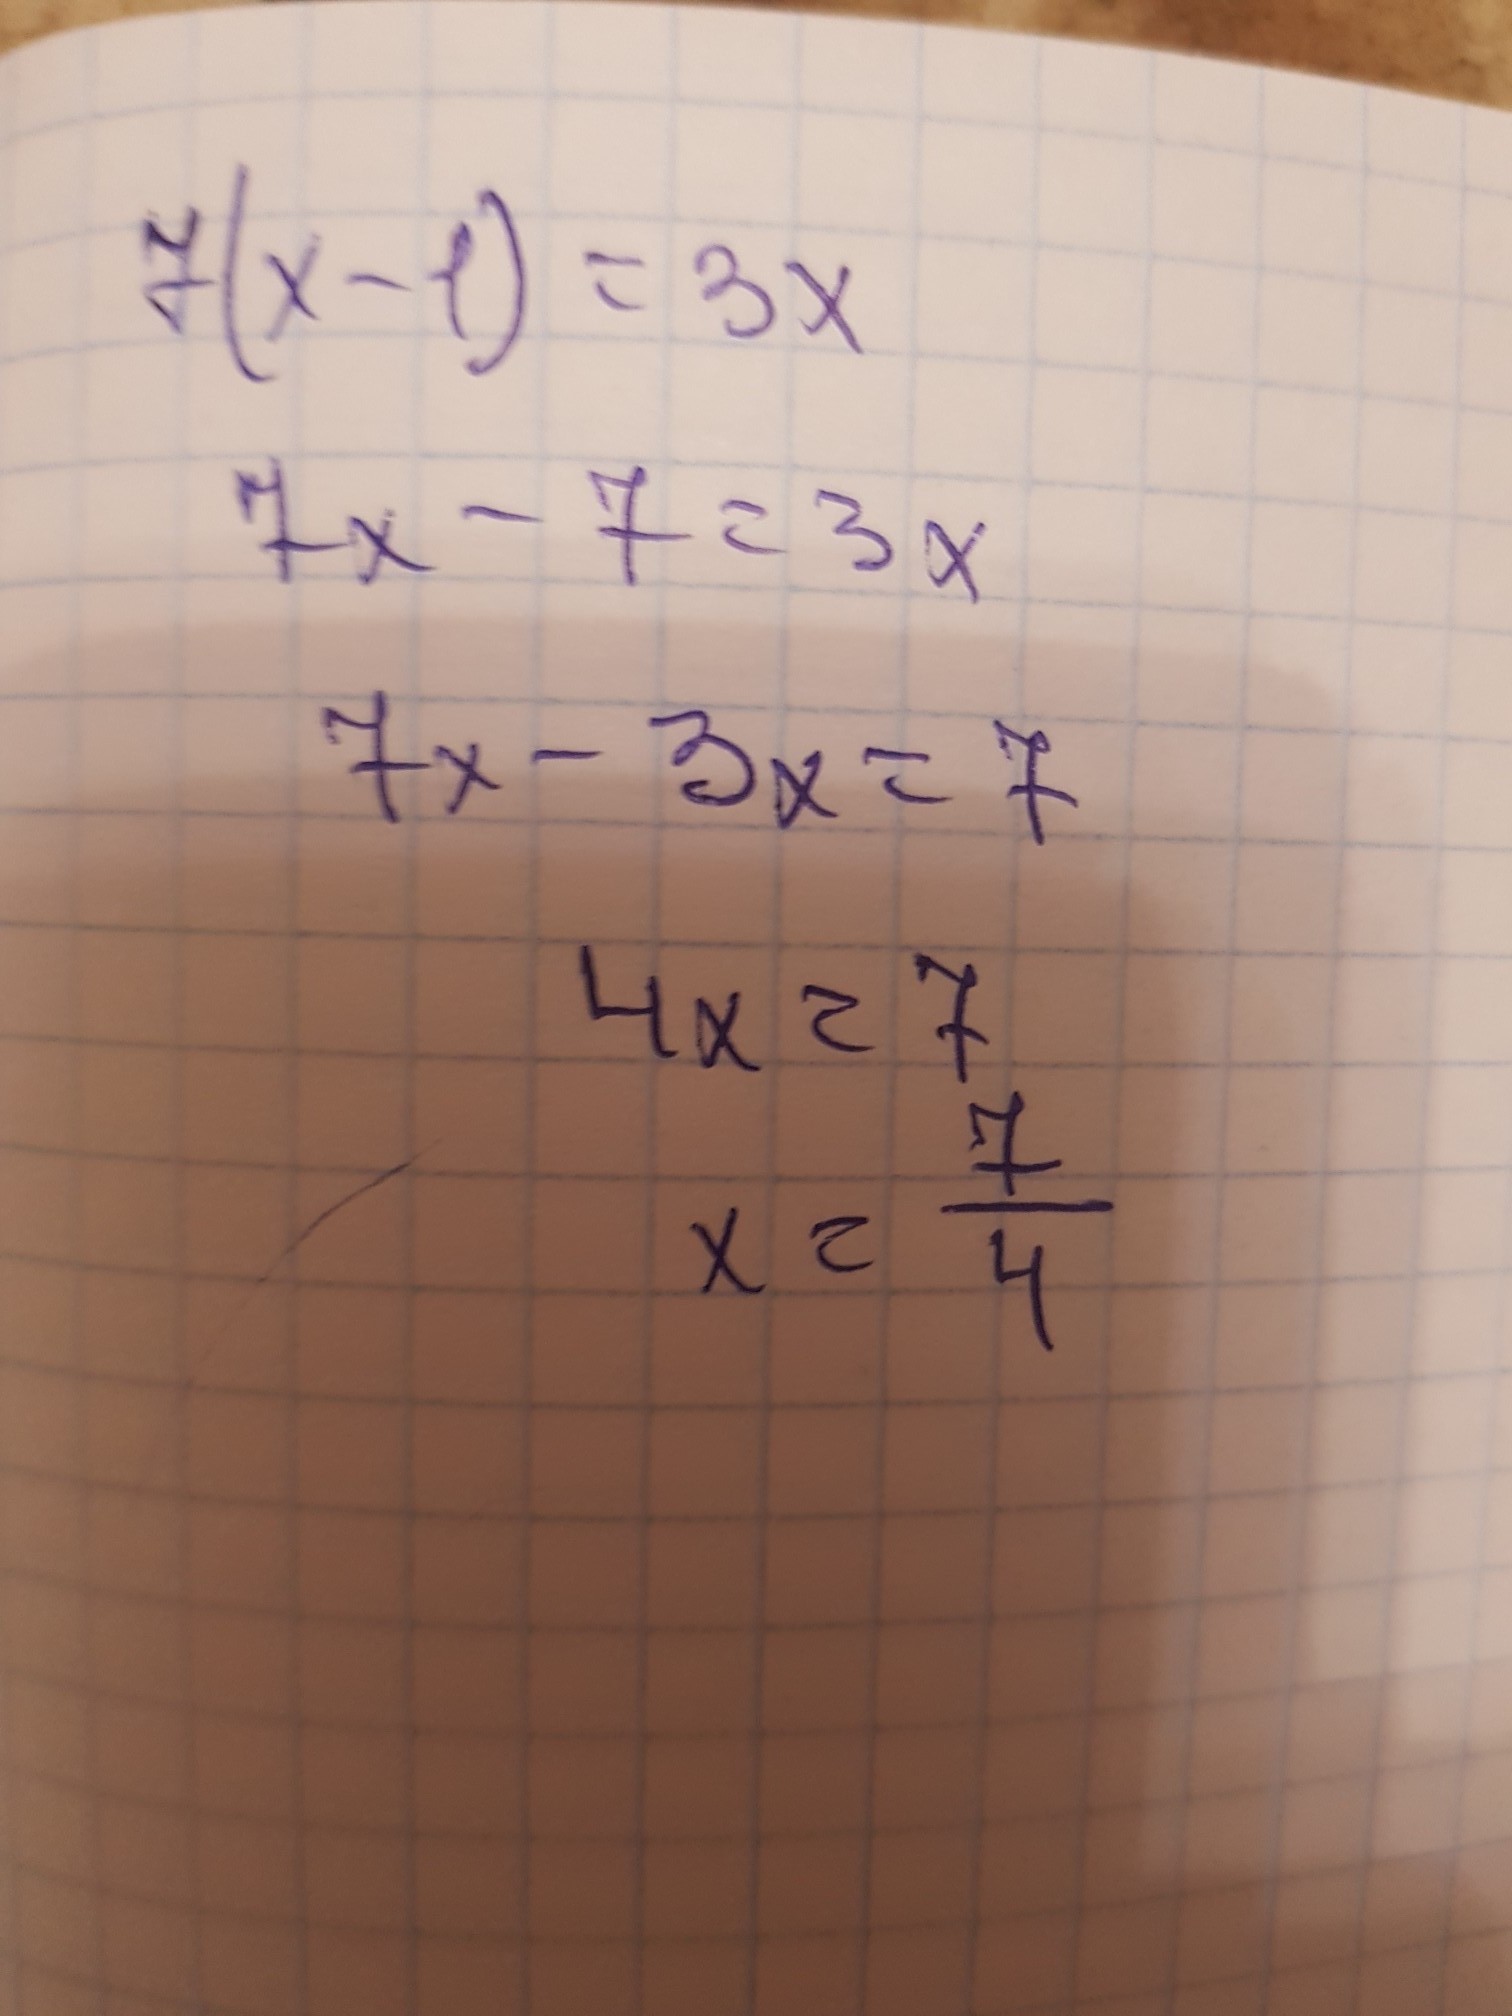 7(x-1) = 3x
7x - 7 = 3x
7x - 3x = 7
4x = 7
x = 7/4